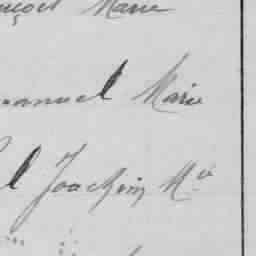 nçois Marie
manuel Marie
l Joachim Mie